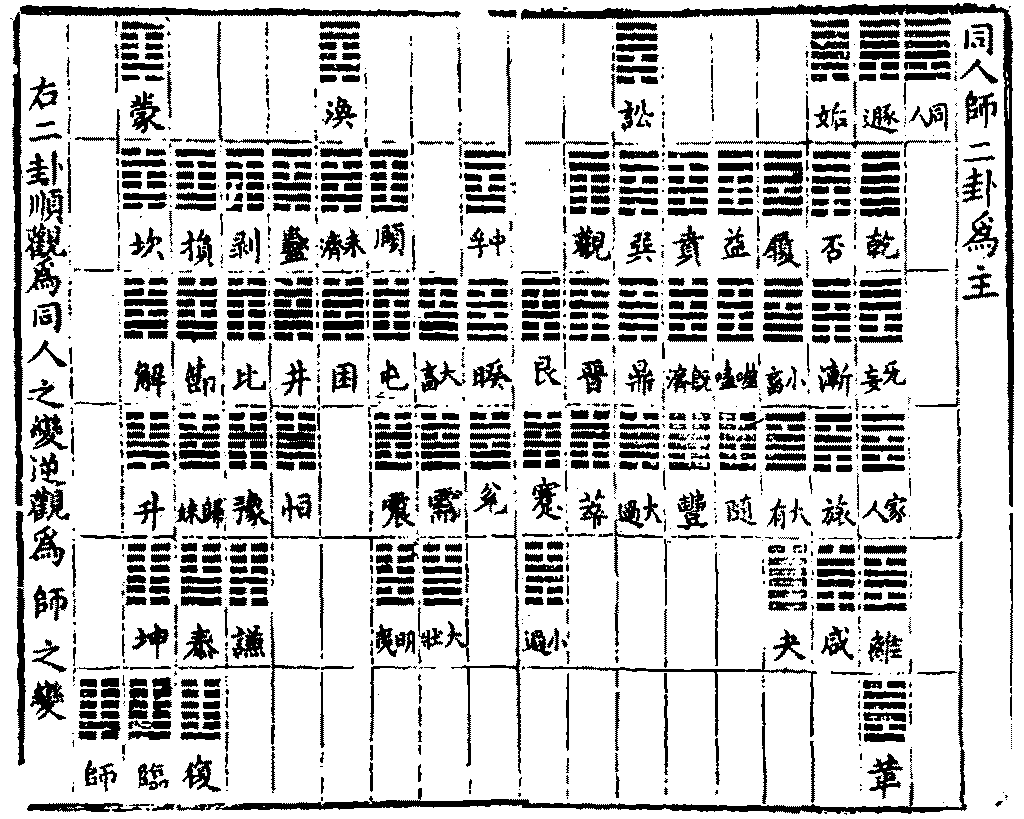 同人師二卦爲主
同人
遯
乾
无妄
家人
離
革
姤
否
漸
旅
咸
履
小畜
大有
夬
益
噬嗑
隨
賁
既濟
豐
訟
巽
鼎
大過
觀
晉
萃
艮
蹇
小過
中孚
睽
兌
大畜
需
大壯
頤
屯
震
明夷
渙
未濟
困
蠱
井
恒
剝
比
豫
謙
損
節
歸妹
泰
復
蒙
坎
解
升
坤
臨
師
右二卦順觀爲同人之變逆觀爲師之變